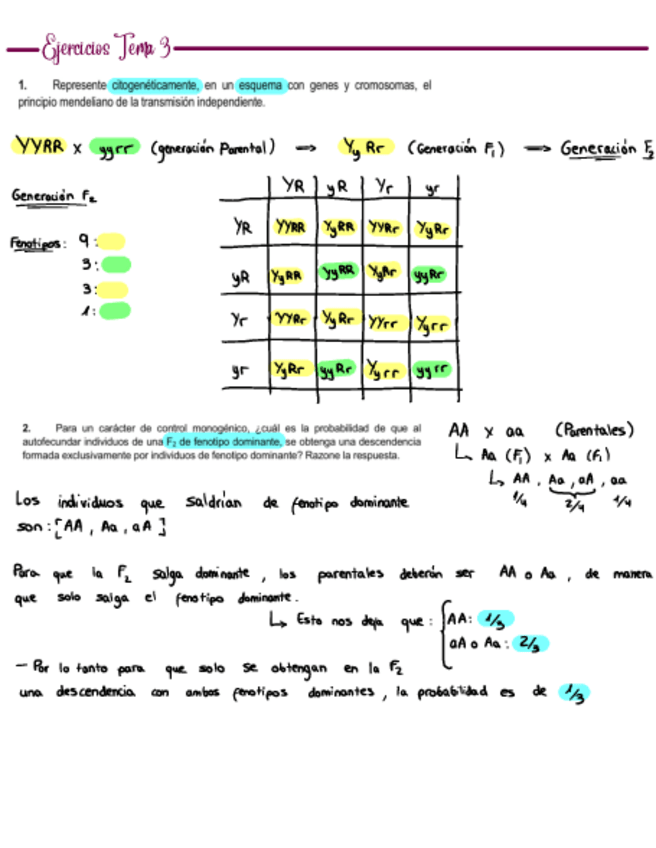 Ejercicios Tema 3
1. Represente citogenéticamente, en un esquema con genes y cromosomas, el
principio mendeliano de la transmisión independiente.
YYRR x yyrr (generación Parental) → Yy Rr (Generación F1) → Generación F2
Generación F2
Fenotipos: 9:
3:
3:
1:
YR yR Yr yr
YR YYRR YyRR YYRr YyRr
yR YyRR yyRR YyRr yyRr
Yr YYRr YyRr YYrr Yyrr
yr YyRr yyRr Yyrr yyrr
2. Para un carácter de control monogénico, ¿cuál es la probabilidad de que al
autofecundar individuos de una F2 de fenotipo dominante, se obtenga una descendencia
formada exclusivamente por individuos de fenotipo dominante? Razone la respuesta.
AA x aa (Parentales)
↳ Aa (F1) x Aa (F1)
↳ AA, Aa, aA, aa
1/4 2/4 1/4
Los individuos que saldrían de fenotipo dominante
son: [AA, Aa, aA]
Para que la F2 salga dominante, los parentales deberán ser AA o Aa, de manera
que solo salga el fenotipo dominante.
↳ Esto nos deja que: { AA: 1/3
aA o Aa: 2/3
- Por lo tanto para que solo se obtengan en la F2
una descendencia con ambos fenotipos dominantes, la probabilidad es de 1/3